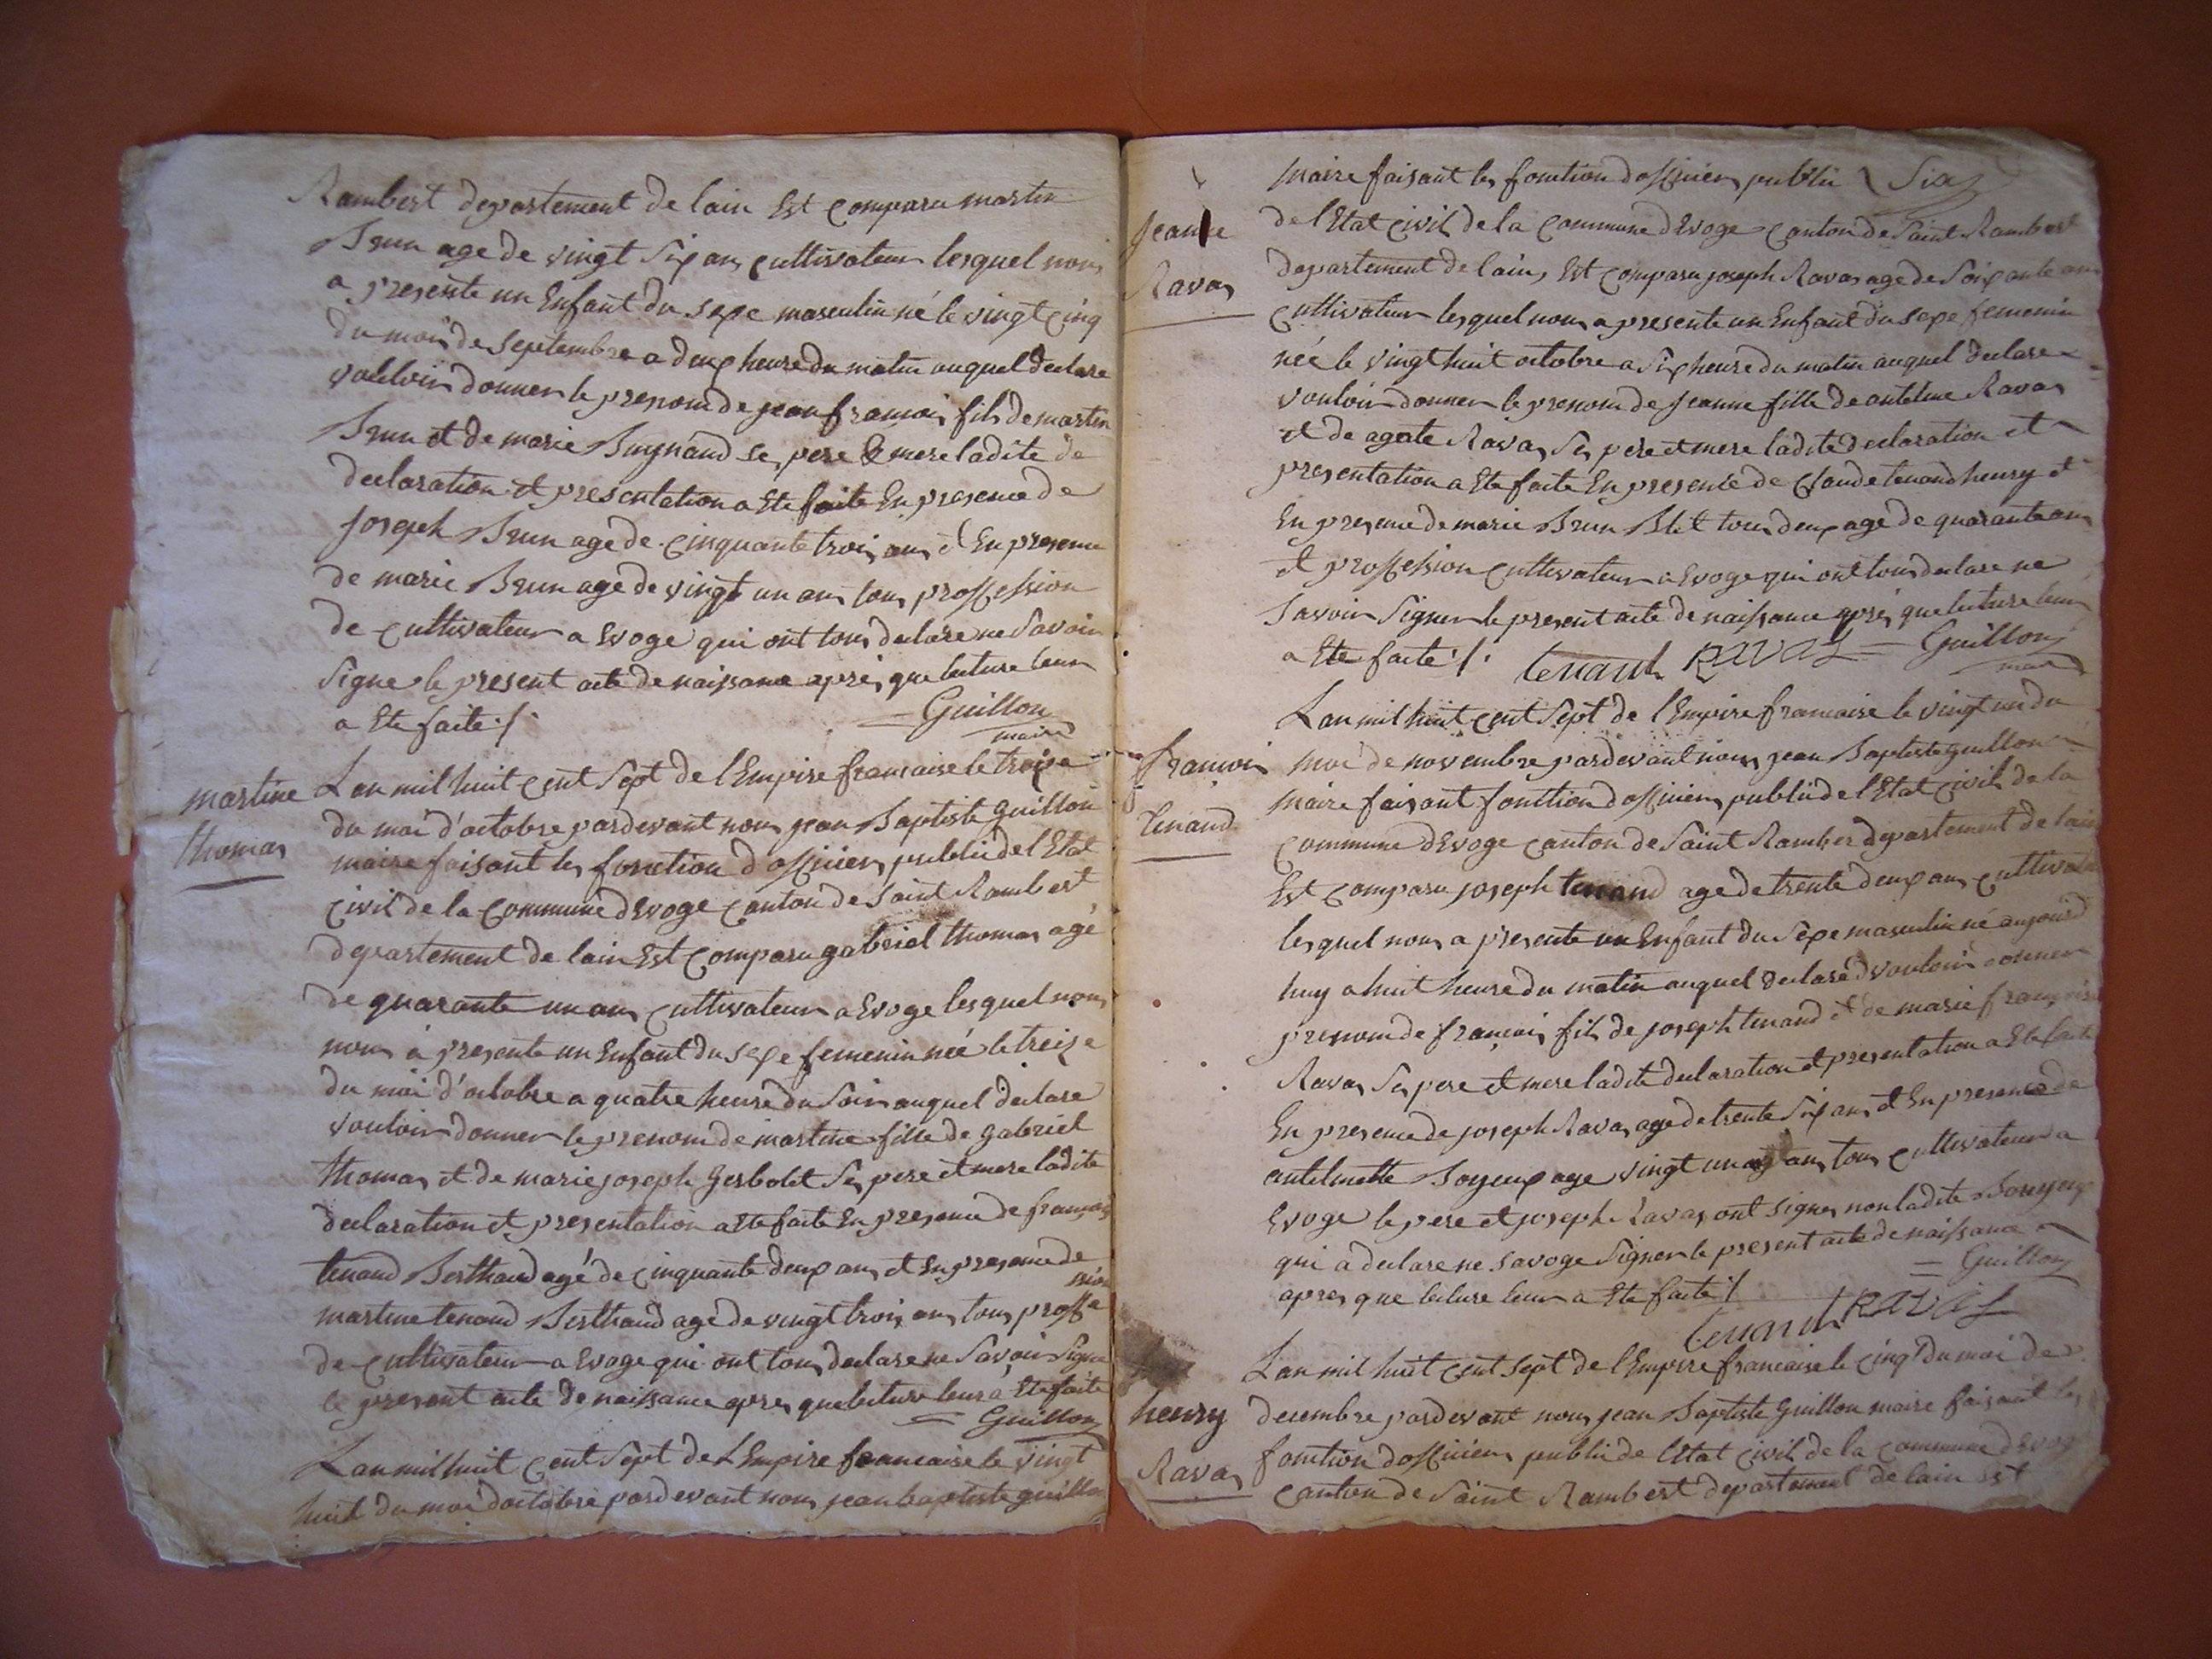 Rambert departement de lain Est Comparu martin
Brun age de vingt Six ans Cultivateur lesquel nous
a presente un Enfant du sexe masculin né le vingt Cinq
du mois de Septembre a deux heure du matin auquel declare
vouloir donner le prenom de jean francois fils de martin
Brun et de marie Buynand Ses pere & mere ladite de
declaration et presentation a Ete faite En presence de
joseph Brun age de Cinquante trois ans et En presence
de marie Brun age de vingt un ans tous proffession
de Cultivateur a Evoge qui ont tous declare ne Savoir
Signe le present acte de naissance apres que lecture leur
a Ete faite ./.
Guillon
maire
martine
thomas
Lan mil huit Cent Sept de l'Empire francaise le treize
du moi d'octobre pardevant nous jean Baptiste Guillon
maire faisant les fonction d'officiers public de l'Etat
Civil de la Commune dEvoge Canton de Saint Rambert
departement de lain Est Comparu gabriel thomas agé
de quarante un ans Cultivateur a Evoge lesquel nous
nous a presente un Enfant du Sexe femenin née le treize
du moi d'octobre a quatre heure du Soir auquel declare
vouloir donner le prenom de martine fille de gabriel
thomas et de marie joseph Gerbolet Ses pere et mere ladite
declaration et presentation a Ete faite En presence de francois
tenand Berthaud agé de Cinquante deux ans et En presence de
martine tenand Berthaud age de vingt trois ans tous proffe
ssion
de Cultivateur a Evoge qui ont tous declare ne Savoir Signe
le present acte de naissance apres que lecture leur a Ete faite
Guillon
Lan mil huit Cent Sept de L'Empire francaise le vingt
huit du moi doctobre pardevant nous jean baptiste guillon
maire faisant les fonction dofficiers public Six
Jeanne
Ravas
de l'Etat Civil de la Commune dEvoge Canton de Saint Rambert
departement de lain, Est Comparu joseph Ravas age de Soixante ans
Cultivateur lesquel nous a presente un Enfant du sexe femenin
née le vingt huit octobre a Six heure du matin auquel declare
vouloir donner le prenom de Jeanne fille de antelme Ravas
et de agate Ravas Ses pere et mere ladite declaration et
presentation a Ete faite En presence de Claude tenand henry et
En presence de marie Brun Blet tous deux age de quarante ans
et proffession Cultivateur a Evoge qui ont tous declare ne
Savoir Signer le present acte de naissance apres que lecture leur
a Ete faite ./. tenant RAVAS Guillon
maire
francois
tenand
Lan mil huit Cent Sept de l'Empire francaise le vingt un du
moi de novembre pardevant nous jean Baptiste guillon
maire faisant fonction dofficiers public de l'Etat Civil de la
Commune dEvoge Canton de Saint Ramber departement de lain
Est Comparu joseph tenand age de trente deux ans Cultivateur
lesquel nous a presente un Enfant du Sexe masculin né aujourd
huy a huit heure du matin auquel declare vouloir donner
prenom de francois fils de joseph tenand et de marie francoise
Ravas Ses pere et mere ladite declaration et presentation a Ete faite
En presence de joseph Ravas age de trente Six ans et En presence de
antelmette Boyeux age vingt un ans tous Cultivateur a
Evoge le pere et joseph Ravas ont Signes non ladite Boryeux
qui a declare ne savoge Signer le present acte de naissance
apres que lecture leur a Ete faite ./. Guillon
tenant RAVAS
henry
Ravas
Lan mil huit Cent Sept de l'Empire francaise le Cinq du moi de
decembre pardevant nous jean Baptiste Guillon maire faisant les
fonction dofficiers public de l'Etat Civil de la Commune dEvoge
Canton de Saint Rambert departement de lain Est